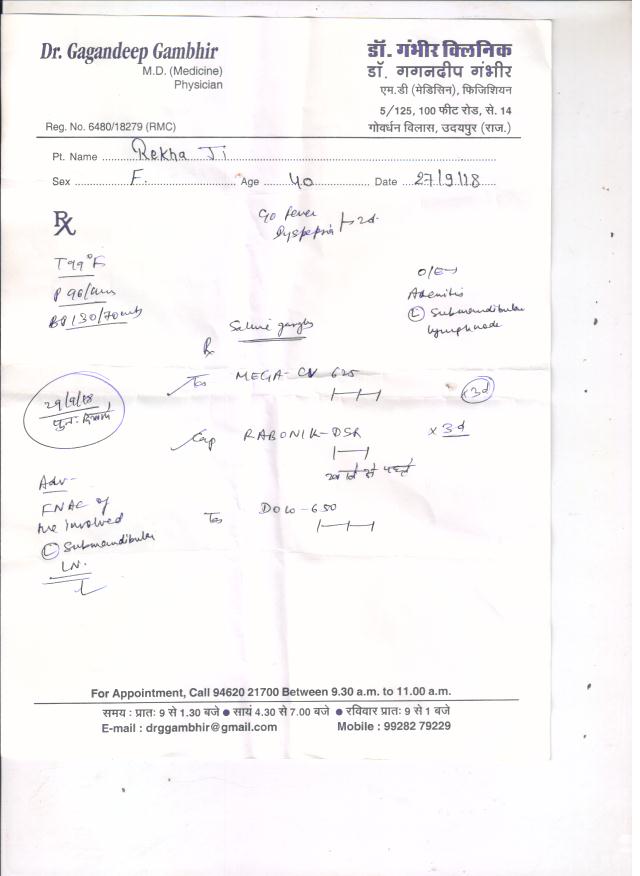 Dr. Gagandeep Gambhir
M.D. (Medicine)
Physician
Reg. No. 6480/18279 (RMC)
डॉ. गंभीर क्लिनिक
डॉ. गगनदीप गंभीर
एम.डी (मेडिसिन), फिजिशियन
5/125, 100 फीट रोड, से. 14
गोवर्धन विलास, उदयपुर (राज.)
Pt. Name Rekha Ji
Sex F. Age 40 Date 27/9/18
Rx
c/o fever
Dyspepsia 2d
T 99°F
P 96/min
BP 130/70
O/E
Adenitis
(L) Submandibular
lymphnode
Saline gargles
Rx
Tab MEGA-CV 625 x3d
29/9/18
पुनः दिखायें
Cap RABONIK-DSR x 3d
खाने से पहले
Adv-
FNAC of
the involved
(L) Submandibular
LN.
Tab DOLO-650
For Appointment, Call 94620 21700 Between 9.30 a.m. to 11.00 a.m.
समय : प्रातः 9 से 1.30 बजे ● सायं 4.30 से 7.00 बजे ● रविवार प्रातः 9 से 1 बजे
E-mail : drggambhir@gmail.com Mobile : 99282 79229